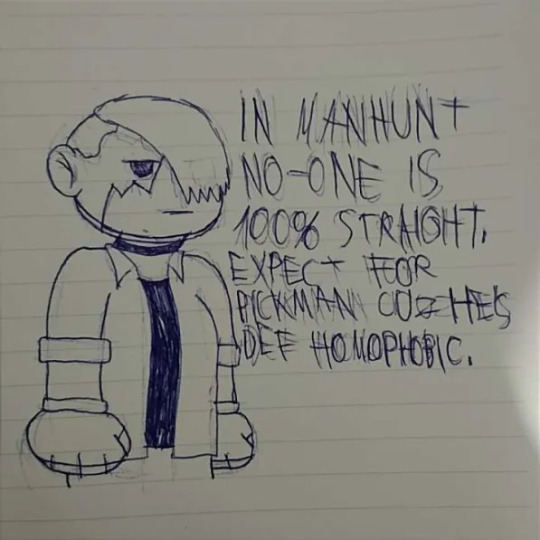 IN MANHUNT
NO-ONE IS
100% STRAIGHT.
EXPECT FOR
PICKMAN COZ HE'S
DEF HOMOPHOBIC.